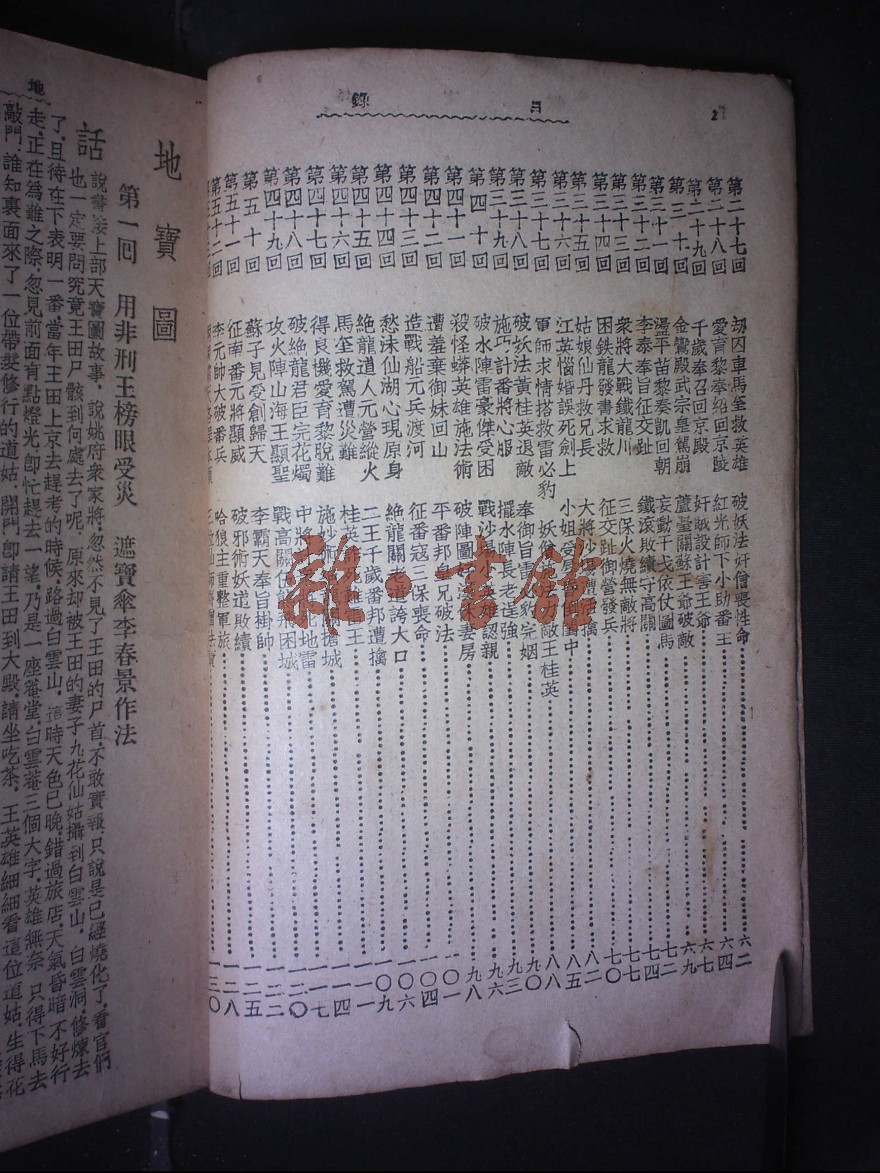 目錄
2
第二十七回 劫囚車馬筌救英雄 破妖法奸僧喪性命 六二
第二十八回 愛育黎奉紹回京陵 紅光師下小助番王 六四
第二十九回 千歲奉召回京殿 奸賊設計害王爺 六七
第三十回 金鸞殿武宗皇駕崩 蘆臺關蘇王爺破敵 六九
第三十一回 盪平苗黎奏凱回朝 妄動干戈依仗圖馬 七二
第三十二回 李泰奉旨征交趾 鐵滾敗績守高關 七四
第三十三回 衆將大戰鐵龍川 三保火燒無敵將 七七
第三十四回 困鐵龍發書求救 征交趾御營發兵 七〇
第三十五回 姑娘仙丹救兄長 大將沙場遭 擒 八二
第三十六回 江英惱婚誤死劍上 小姐受 閨中 八五
第三十七回 軍師求情搭救雷必豹 妖僧 力敵王桂英 八八
第三十八回 破妖法黃桂英退敵 奉御旨雷 豹完姻 九〇
第三十九回 施巧計番將心服 擺水陣長老逞強 九三
第四十回 破水陣雷豪傑受困 戰沙場小 雄認親 九八
第四十一回 殺怪蟒英雄施法術 破陣圖 妻房 一〇一
第四十二回 遭羞棄御妹回山 平番邦身兄破法 一〇四
第四十三回 造戰船元兵渡河 征番寇三保喪命 一〇六
第四十四回 愁沫仙湖心現原身 絶龍關老道誇大口 一〇九
第四十五回 絶龍道人元營縱火 二王千歲番邦遭擒 一一一
第四十六回 馬筌救駕遭災難 桂英 王 一一四
第四十七回 得良機愛育黎脫難 施妙術 搶城 一一七
第四十八回 破絶龍君臣完花燭 中將 地雷 一二〇
第四十九回 攻火陣山海王顯聖 戰高關伍 邦困城 一二二
第五十回 蘇子見受創歸天 李霸天奉旨掛帥 一二五
第五十一回 征南番元將顯威 破邪術妖道敗績 一二八
第五十二回 李元帥大破番兵 哈狼主重整軍旅 一三〇
地
地寶圖
第一回 用非刑王榜眼受災 遮寶傘李春景作法
話說書接上部天寶圖故事，說姚府衆家將，忽然不見了王田的尸首，不敢實報，只說是已經燒化了，看官們
也一定要問究竟王田尸骸到何處去了呢，原來却被王田的妻子九花仙姑攝到白雲山，白雲洞修煉去
了，且待在下表明一番，當年王田上京去趕考的時候，路過白雲山，這時天色已晚，錯過旅店，天氣昏暗不好行
走，正在爲難之際，忽見前面有點燈光，卽忙趕去一望，乃是一座菴堂，白雲菴三個大字，英雄無奈只得下馬去
敲門，誰知裏面來了一位帶髮修行的道姑，開門卽請王田到大殿請坐吃茶，王英雄細細看這位道姑，生得花
雜·書館